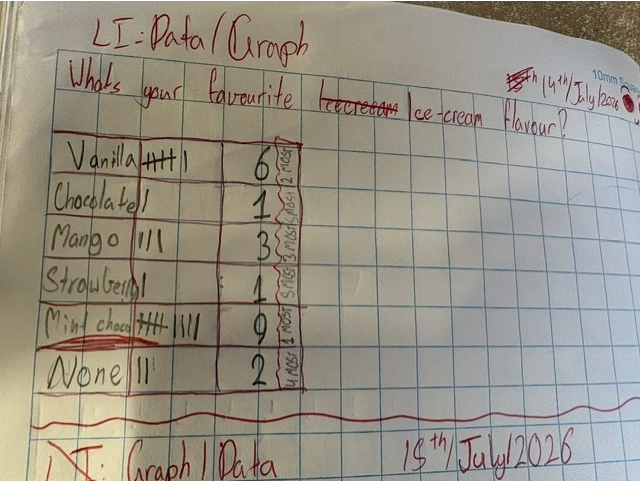 LI: Data/Graph
10mm S
14th/July/2026
Whats your favourite Ice-cream flavour?
Vanilla 6 2 MOST
Chocolate 1 5 MOST
Mango 3 3 MOST
Strowberry 1 5 MOST
Mint choco 9 1 MOST
None 2 4 MOST
LI: Graph/Data 15th/July/2026